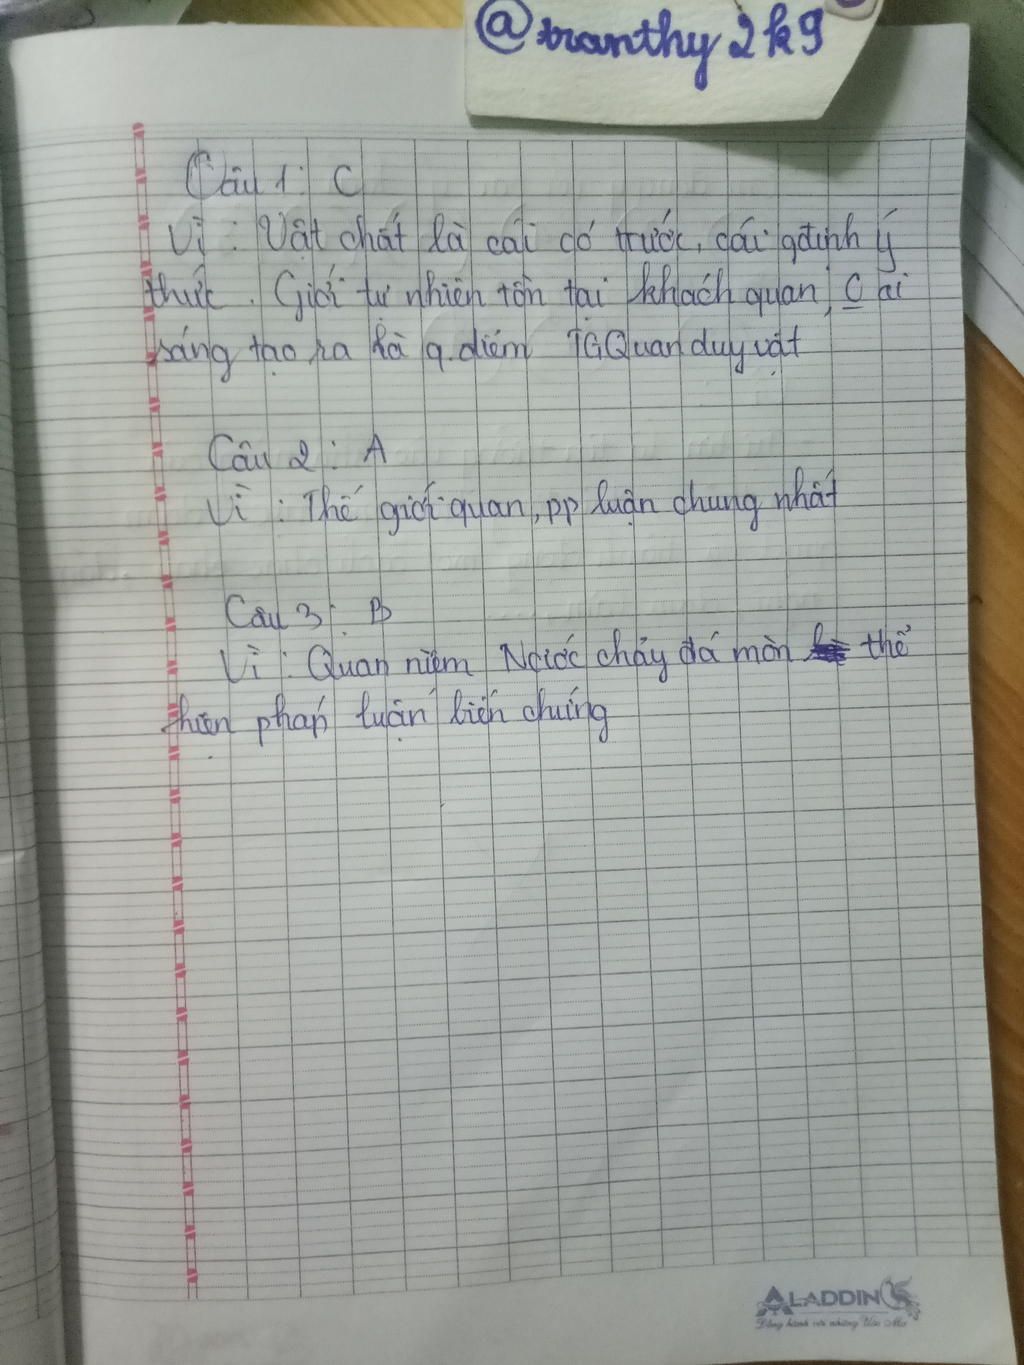 @tranthy2k9
Câu 1: C
Vì: Vật chất là cái có trước, cái qđịnh ý
thức. Giới tự nhiên tồn tại khách quan, C ai
sáng tạo ra là q.điểm TGQuan duy vật
Câu 2: A
Vì: Thế giới quan, pp luận chung nhất
Câu 3: B
Vì: Quan niệm Nước chảy đá mòn thể
hiện pháp luận biến chứng
ALADDIN
Đồng hành với những Ước Mơ